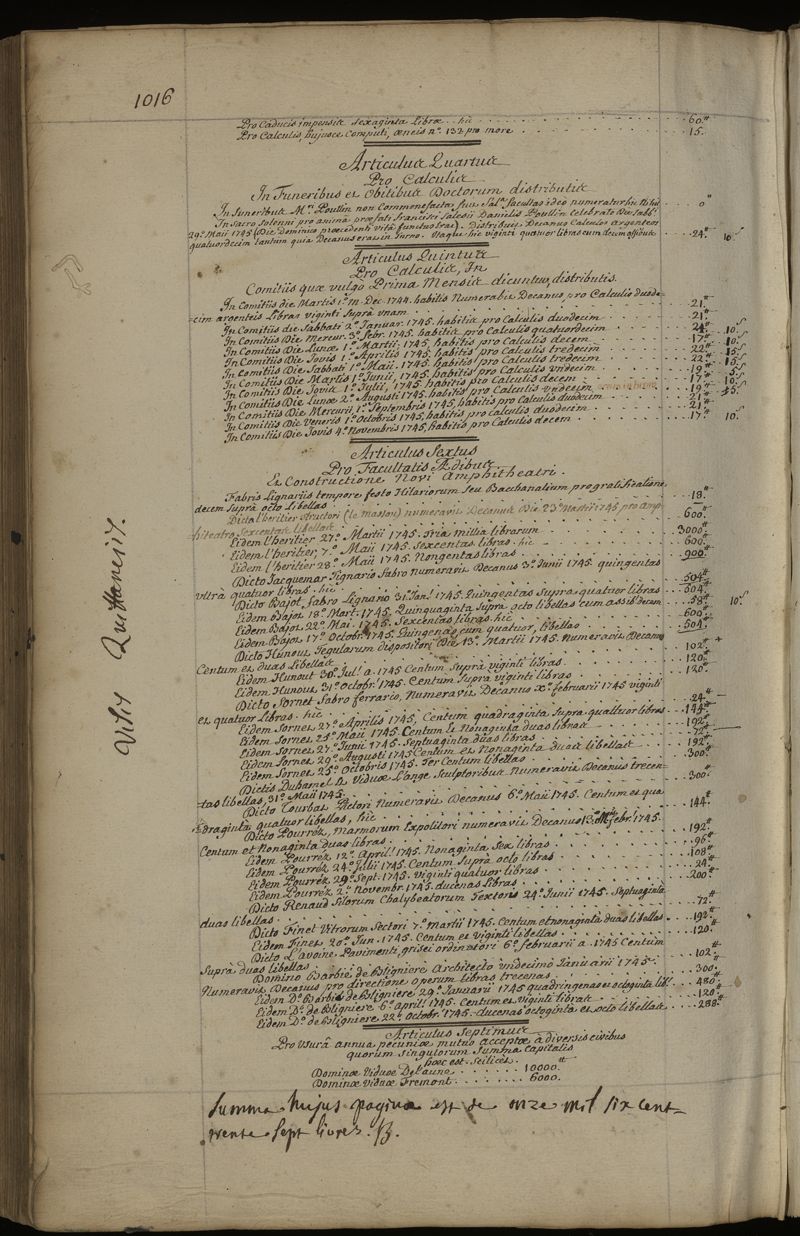 1016
Pro Caducis impensis sexaginta Libræ. hic . . . 60.tt
Pro Calculis hujusce Computi, æneis n.° 132 pro more . . . 15.
Articulus Quartus
Pro Calculis
In Funeribus et Obitibus Doctorum distributis
In funeribus M.ri Poullin non Commonefacta fuit Sal. facultas ideo numeratur hic Nihil . . . 0"
In Sacro solenni pro anima præfati francisci Salesii Danielis Poullin Celebrato die Sabb.
29.a Maii 1745 (Die Dominico præcedenti vitâ functus erat). Distribuit Decanus Calculos argenteos
quatuordecim tantum quia Decanus erat in turno. Itaque hic viginti quatuor libras cum decem assibus . . . 24.tt 10.s
Articulus Quintus
Pro Calculis, In
Comitiis quæ vulgo Prima Mensis dicuntur, distributis.
In Comitiis die Martis 1.a m. Dec. 1744. habitis Numeravit Decanus, pro Calculis duode=
cim argenteis Libras viginti Suprà unam . . . 21.tt
In Comitiis die Sabbati 2.a Januar. 1745. habitis pro Calculis duodecim . . . 21.tt
In Comitiis Die Mercur. 3.a febr. 1745. habitis pro Calculis quatuordecim . . . 24.tt 10.s
In Comitiis Die Lunæ 1.a Martii. 1745, habitis pro Calculis decem . . . 17.tt 10.s
In Comitiis Die Jovis 1.a Aprilis 1745 habitis pro Calculis tredecim . . . 22.tt 15.s
In Comitiis Die Sabbati 1.a Maii. 1745. habitis pro Calculis tredecim . . . 22.tt 15.s
In Comitiis Die Martis 1.a Junii, 1745, habitis pro Calculis undecim . . . 19.tt 5.s
In Comitiis Die Jovis 1.a Julii, 1745, habitis pro Calculis decem . . . 17.tt 10.s
In Comitiis Die Lunæ 2.a Augusti 1745. habitis pro Calculis undecim . . . 19.tt 5.s
In Comitiis Die Mercurii 1.a Septembris 1745, habitis pro Calculis duodecim . . . 21.tt
In Comitiis Die Veneris 1.a Octobris 1745, habitis pro Calculis duodecim . . . 21.tt
In Comitiis Die Jovis 4.a Novembris 1745, habitis pro Calculis decem . . . 17.tt 10.s
Articulus Sextus
Pro Facultatis Ædibus
Et Constructione Novi Amphitheatri.
Fabris Lignariis tempore festo Hilariorum Seu Bacchanalium pro gratificatione
decem Suprà octo Libellas . . . 18.tt
Dicto Lheritier Structori (le masson) numeravit Decanus Die 23.a Martii 1745 pro amp=
hiteatro Sexcentas libellas . . . 600.tt
Eidem Lheritier 27.a Martii 1745. tria millia librarum . . . 3000.tt
Eidem Lheritier, 7.a Maii 1745. Sexcentas libras. hic . . . 600.tt
Eidem Lheritier 28.a Maii 1745. Nongentas libras . . . 900.tt
Dicto Jacquemar Lignario fabro numeravit Decanus 3.a Junii 1745. quingentas
ultrà quatuor libras. hic . . . 504.tt
Dicto Bajot, fabro Lignario 31.a Jan. 1745. Quingentas Supra quatuor libras . . . 504.tt
Eidem Bajot 18.a Mart. 1745. Quinquaginta Supra octo libellas cum assib. decem . . . 58.tt 10.s
Eidem Bajot 22.a Mai. 1745. Sexcentas libras. hic . . . 600.tt
Eidem Bajot 17.a Octobr. 1745. Quingentas cum quatuor, libellas . . . 504.tt
Dicto Hunout Tegularum dispositori Die 13.a Martii 1745. Numeravit Decanus
Centum et duas Libellas . . . 102.tt
Eidem Hunout 30.a Jul. a. 1745 Centum Suprà viginti libras . . . 120.tt
Eidem Hunout, 31.a Octobr. 1745. Centum Supra viginti libras . . . 120.tt
Dicto Jornet fabro ferrario, Numeravit Decanus X.a februarii 1745 viginti
et quatuor Libras. hic . . . 24.tt
Eidem Jornet 27.a Aprilis 1745, Centum quadraginta Supra quattuor libras . . . 144.tt
Eidem Jornet 25.a Maii 1745. Centum et Nonaginta duas libras . . . 192.tt
Eidem Jornet 27.a Junii 1745. Septuaginta duas libras . . . 72.tt
Eidem Jornet 20.a Augusti 1745 Centum et Nonaginta duas libellas . . . 192.tt
Eidem Jornet 25.a Octobris 1745. Ter Centum libellas . . . 300.tt
Dictis Duhamel et Viduæ Lange Sculptoribus Numeravit Decanus trecen=
tas libellas, 31.a Maii 1745 . . . 300.tt
Dicto Tourbas Pictori Numeravit Decanus 6.a Maii 1745. Centum et qua
draginta quatuor libellas, hic . . . 144.tt
Dicto Pourrez, marmorum Expolitori numeravit Decanus 13.a febr. 1745.
Centum et Nonaginta duas libras . . . 192.tt
Eidem Pourrez 12.a April. 1745. Nonaginta Sex libras . . . 96.tt
Eidem Pourrez 24.a Julii 1745. Centum Suprà octo libras . . . 108.tt
Eidem Pourrez 29.a Sept. 1745. Viginti quatuor libras . . . 24.tt
Eidem Pourrez 2.a Novembr. 1745. ducenas libras . . . 200.tt
Dicto Renaud filorum Chalybeatorum Textori 24.a Junii 1745. Septuaginta
duas libellas . . . 72.tt
Dicto Finet Vitrorum Sectori 7.a Martii 1745. Centum et nonaginta duas libellas . . . 192.tt
Eidem Finet 20.a Jun. 1745. Centum et Viginti libellas . . . 120.tt
Dicto L'avoine Pavimenti, grisei ordinatori 6.a februarii a. 1745 Centum
Suprà duas libellas . . . 102.tt
Domino Barbié de Bligniere Architecto undecimo Januarii 1745.
Numeravit Decanus pro directione operum libras trecenas . . . 300.tt
Eidem D.o Barbié de Bligniere 29.a Januarii 1745 quadringenas et octoginta lib. . . . 480.tt
Eidem D.o de Bligniere 6.a april. 1745. Centum et viginti libras . . . 120.tt
Eidem D.o de Bligniere 22.a Octobr. 1745. ducenas octoginta et octo libellas . . . 288.tt
Articulus Septimus
Pro Usurâ annua pecuniæ mutuo acceptæ à diversis civibus
quorum singulorum Summa Capitalis
hæc est. scilicet.
Dominæ Viduæ Delaune . . . 10000.tt
Dominæ viduæ Fremont . . . 6000.
Summa hujus paginæ est de onze mil six cent
trente sept livres.
Visis Quittanciis.